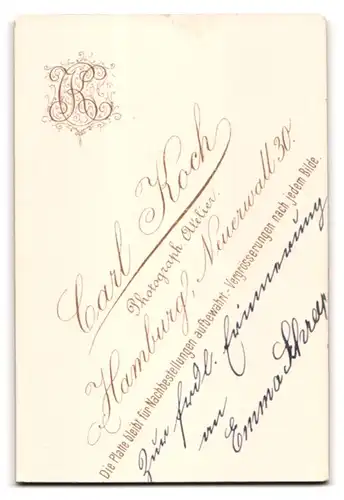 CK
Carl Koch
Photograph. Atelier.
Hamburg, Neuerwall 30.
Die Platte bleibt für Nachbestellungen aufbewahrt.- Vergrösserungen nach jedem Bilde.
Zur frdl. Erinnerung
an
Emma